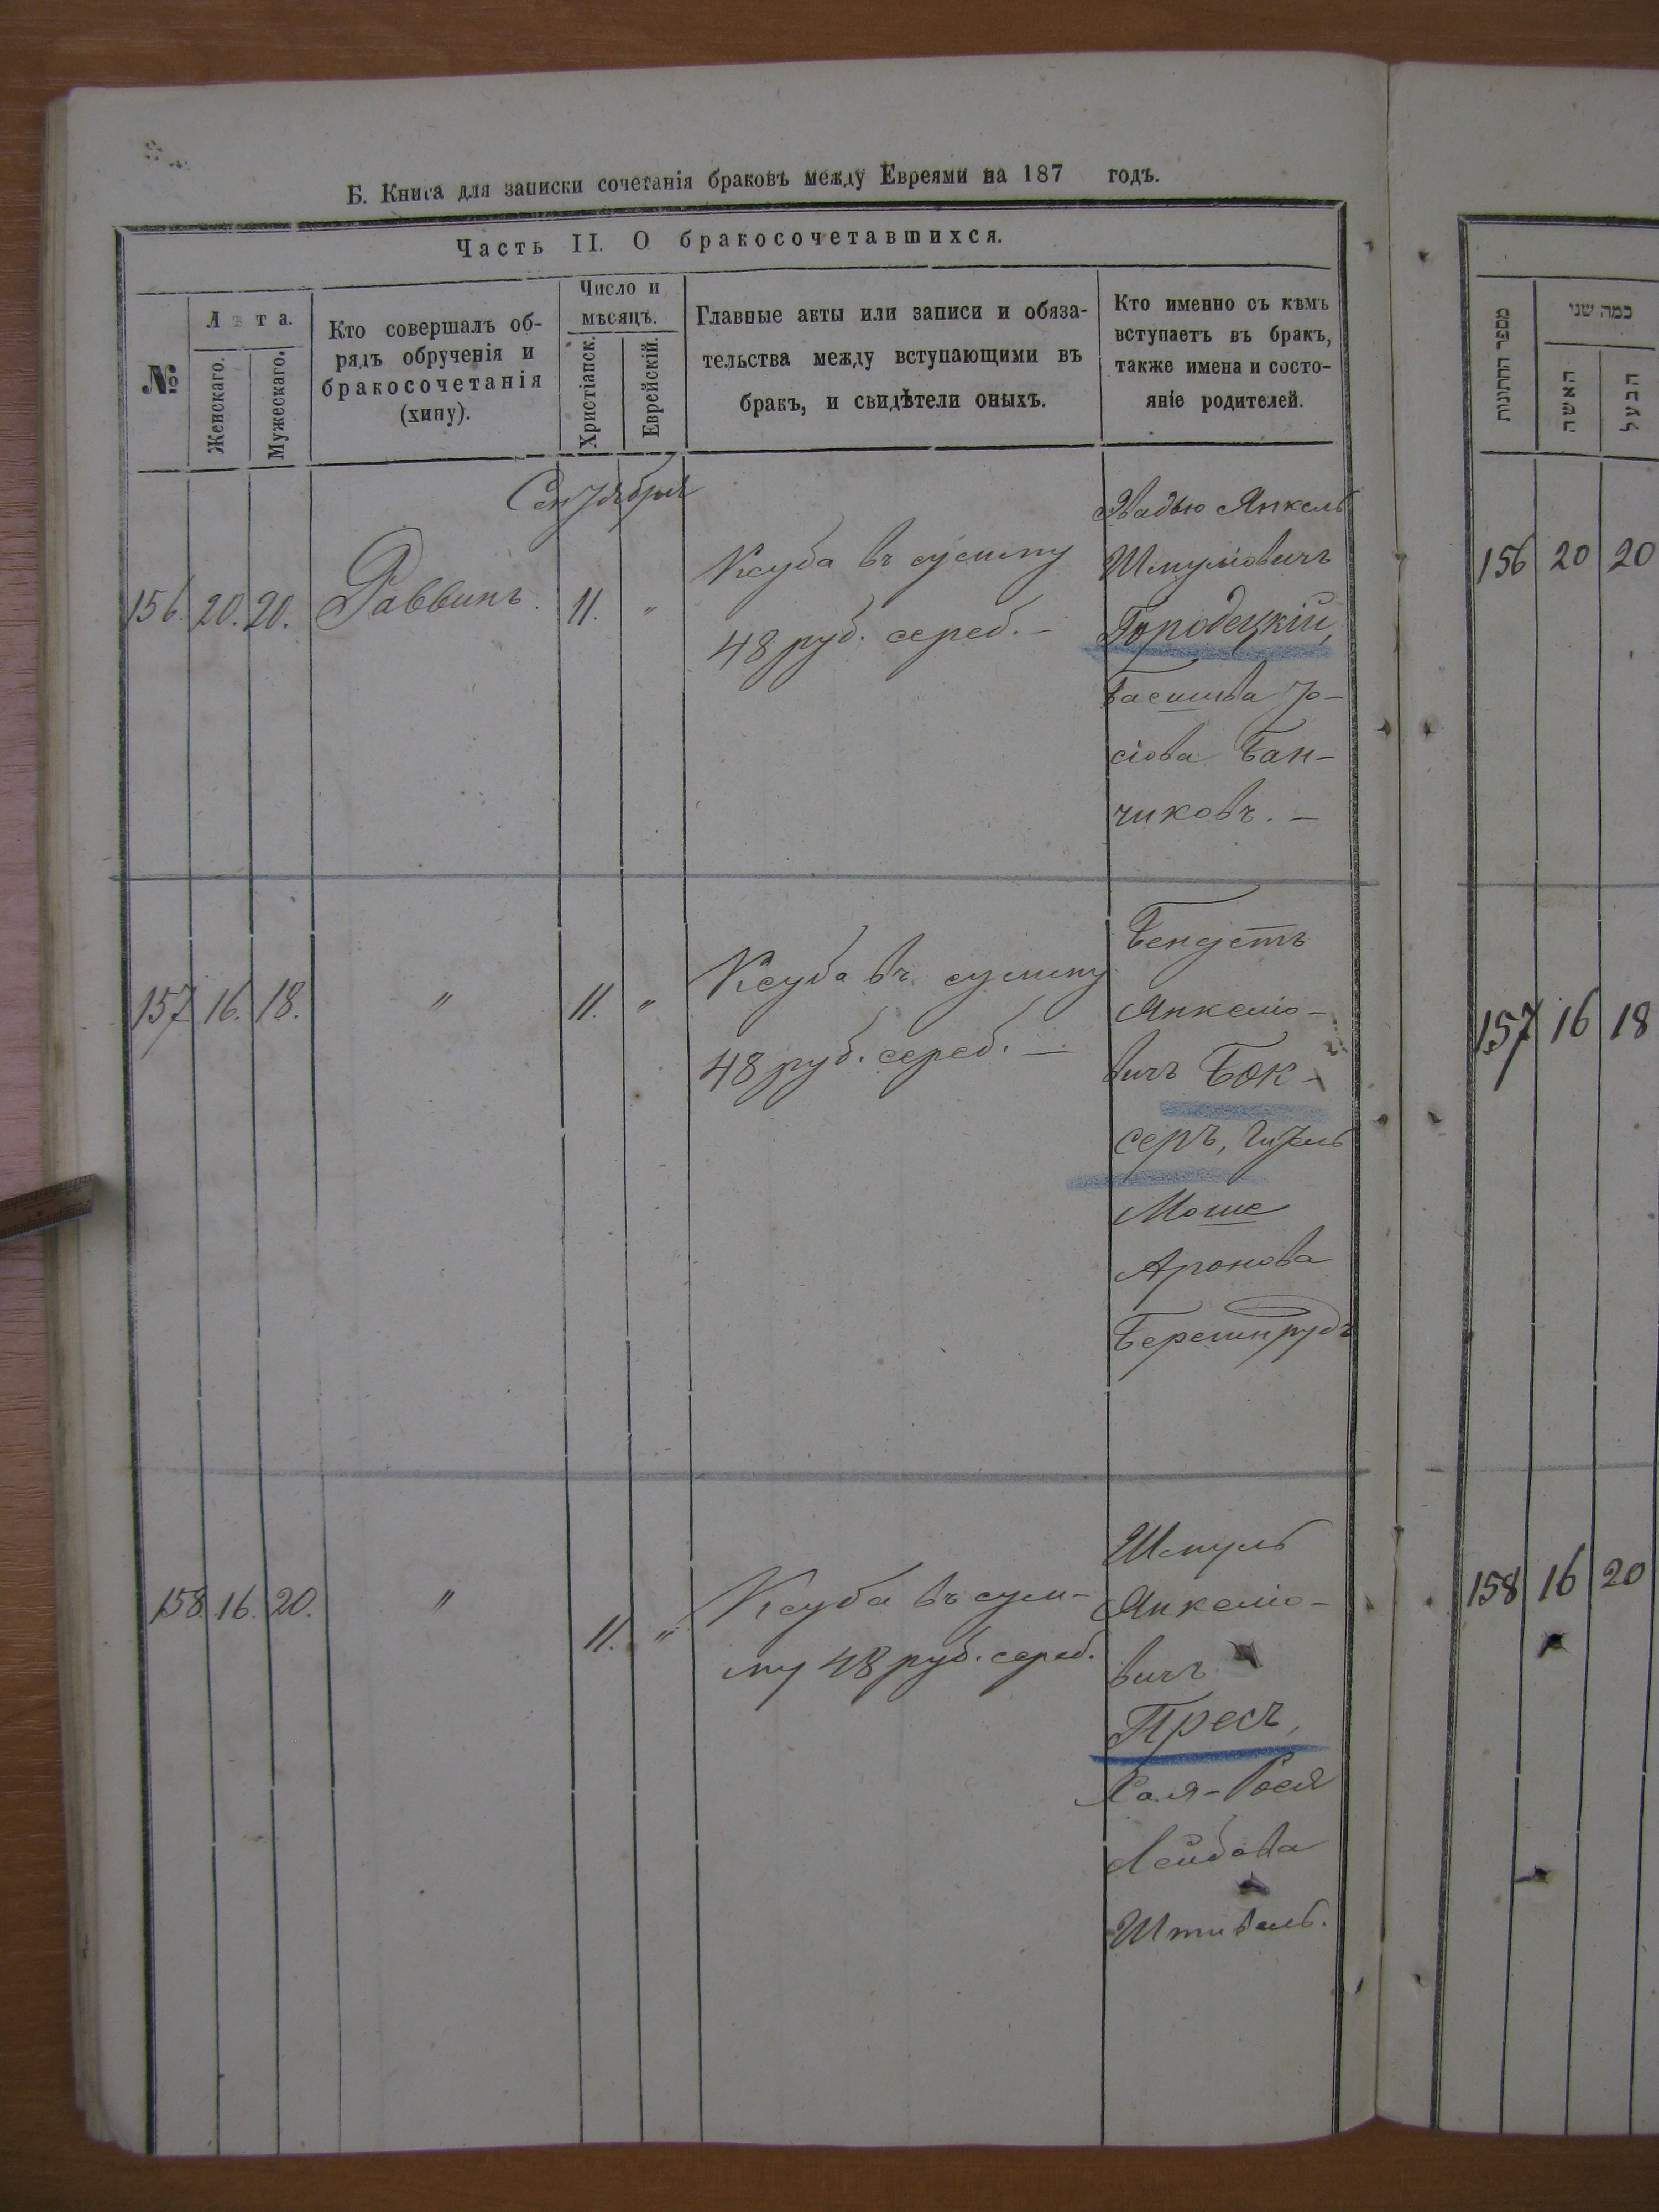 Б. Книга для записки сочетанія браковъ между Евреями на 187 годъ.
Часть II. О бракосочетавшихся.
№
Лѣта.
Женскаго.
Мужескаго.
Кто совершалъ об-
рядъ обрученія и
бракосочетанія
(хипу).
Число и
мѣсяцъ.
Христіанск.
Еврейскій.
Главные акты или записи и обяза-
тельства между вступающими въ
бракъ, и свидѣтели оныхъ.
Кто именно съ кѣмъ
вступаетъ въ бракъ,
также имена и состо-
яніе родителей.
Сентября
156. 20. 20. Раввинъ. 11. "
Ксуба въ сумму
48 руб. сереб. –
Янкель
Шмуліовичъ
Городецкій,
Іо-
сіова Бан-
чиковъ. –
157 16. 18. " 11. "
Ксуба въ сумму
48 руб. сереб. –
Бендетъ
Янкеліо-
вичъ Бок-
серъ,
Моше
Аронова
158 16. 20. " 11. "
Ксуба въ сум-
му 48 руб. сереб.
Шмуль
Янкеліо-
вичъ
Пресъ,
Хая-Рося
Лейбова
Штивель.
מספר החתונות
כמה שני
האשה
הבעל
156 20 20
157 16 18
158 16 20